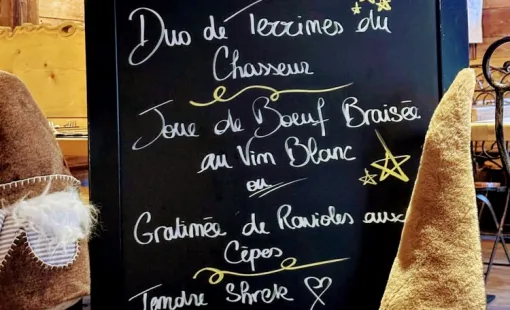 Duo de Terrines du
Chasseur
Joue de Boeuf Braisée
au Vin Blanc
ou
Gratinée de Ravioles aux
Cèpes
Tendre Shrek